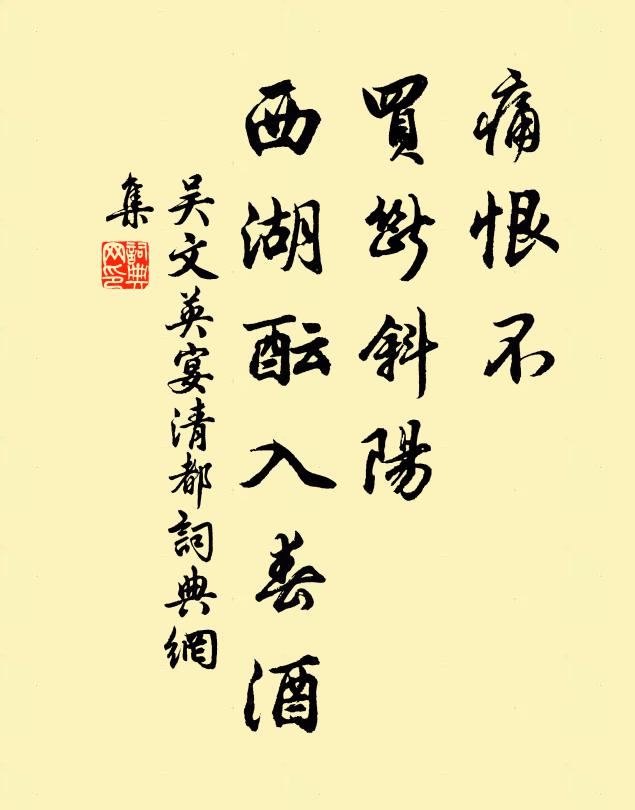 痛恨不
買斷斜陽
西湖酝入春酒
吴文英宴清都詞典網
集
詞典网印